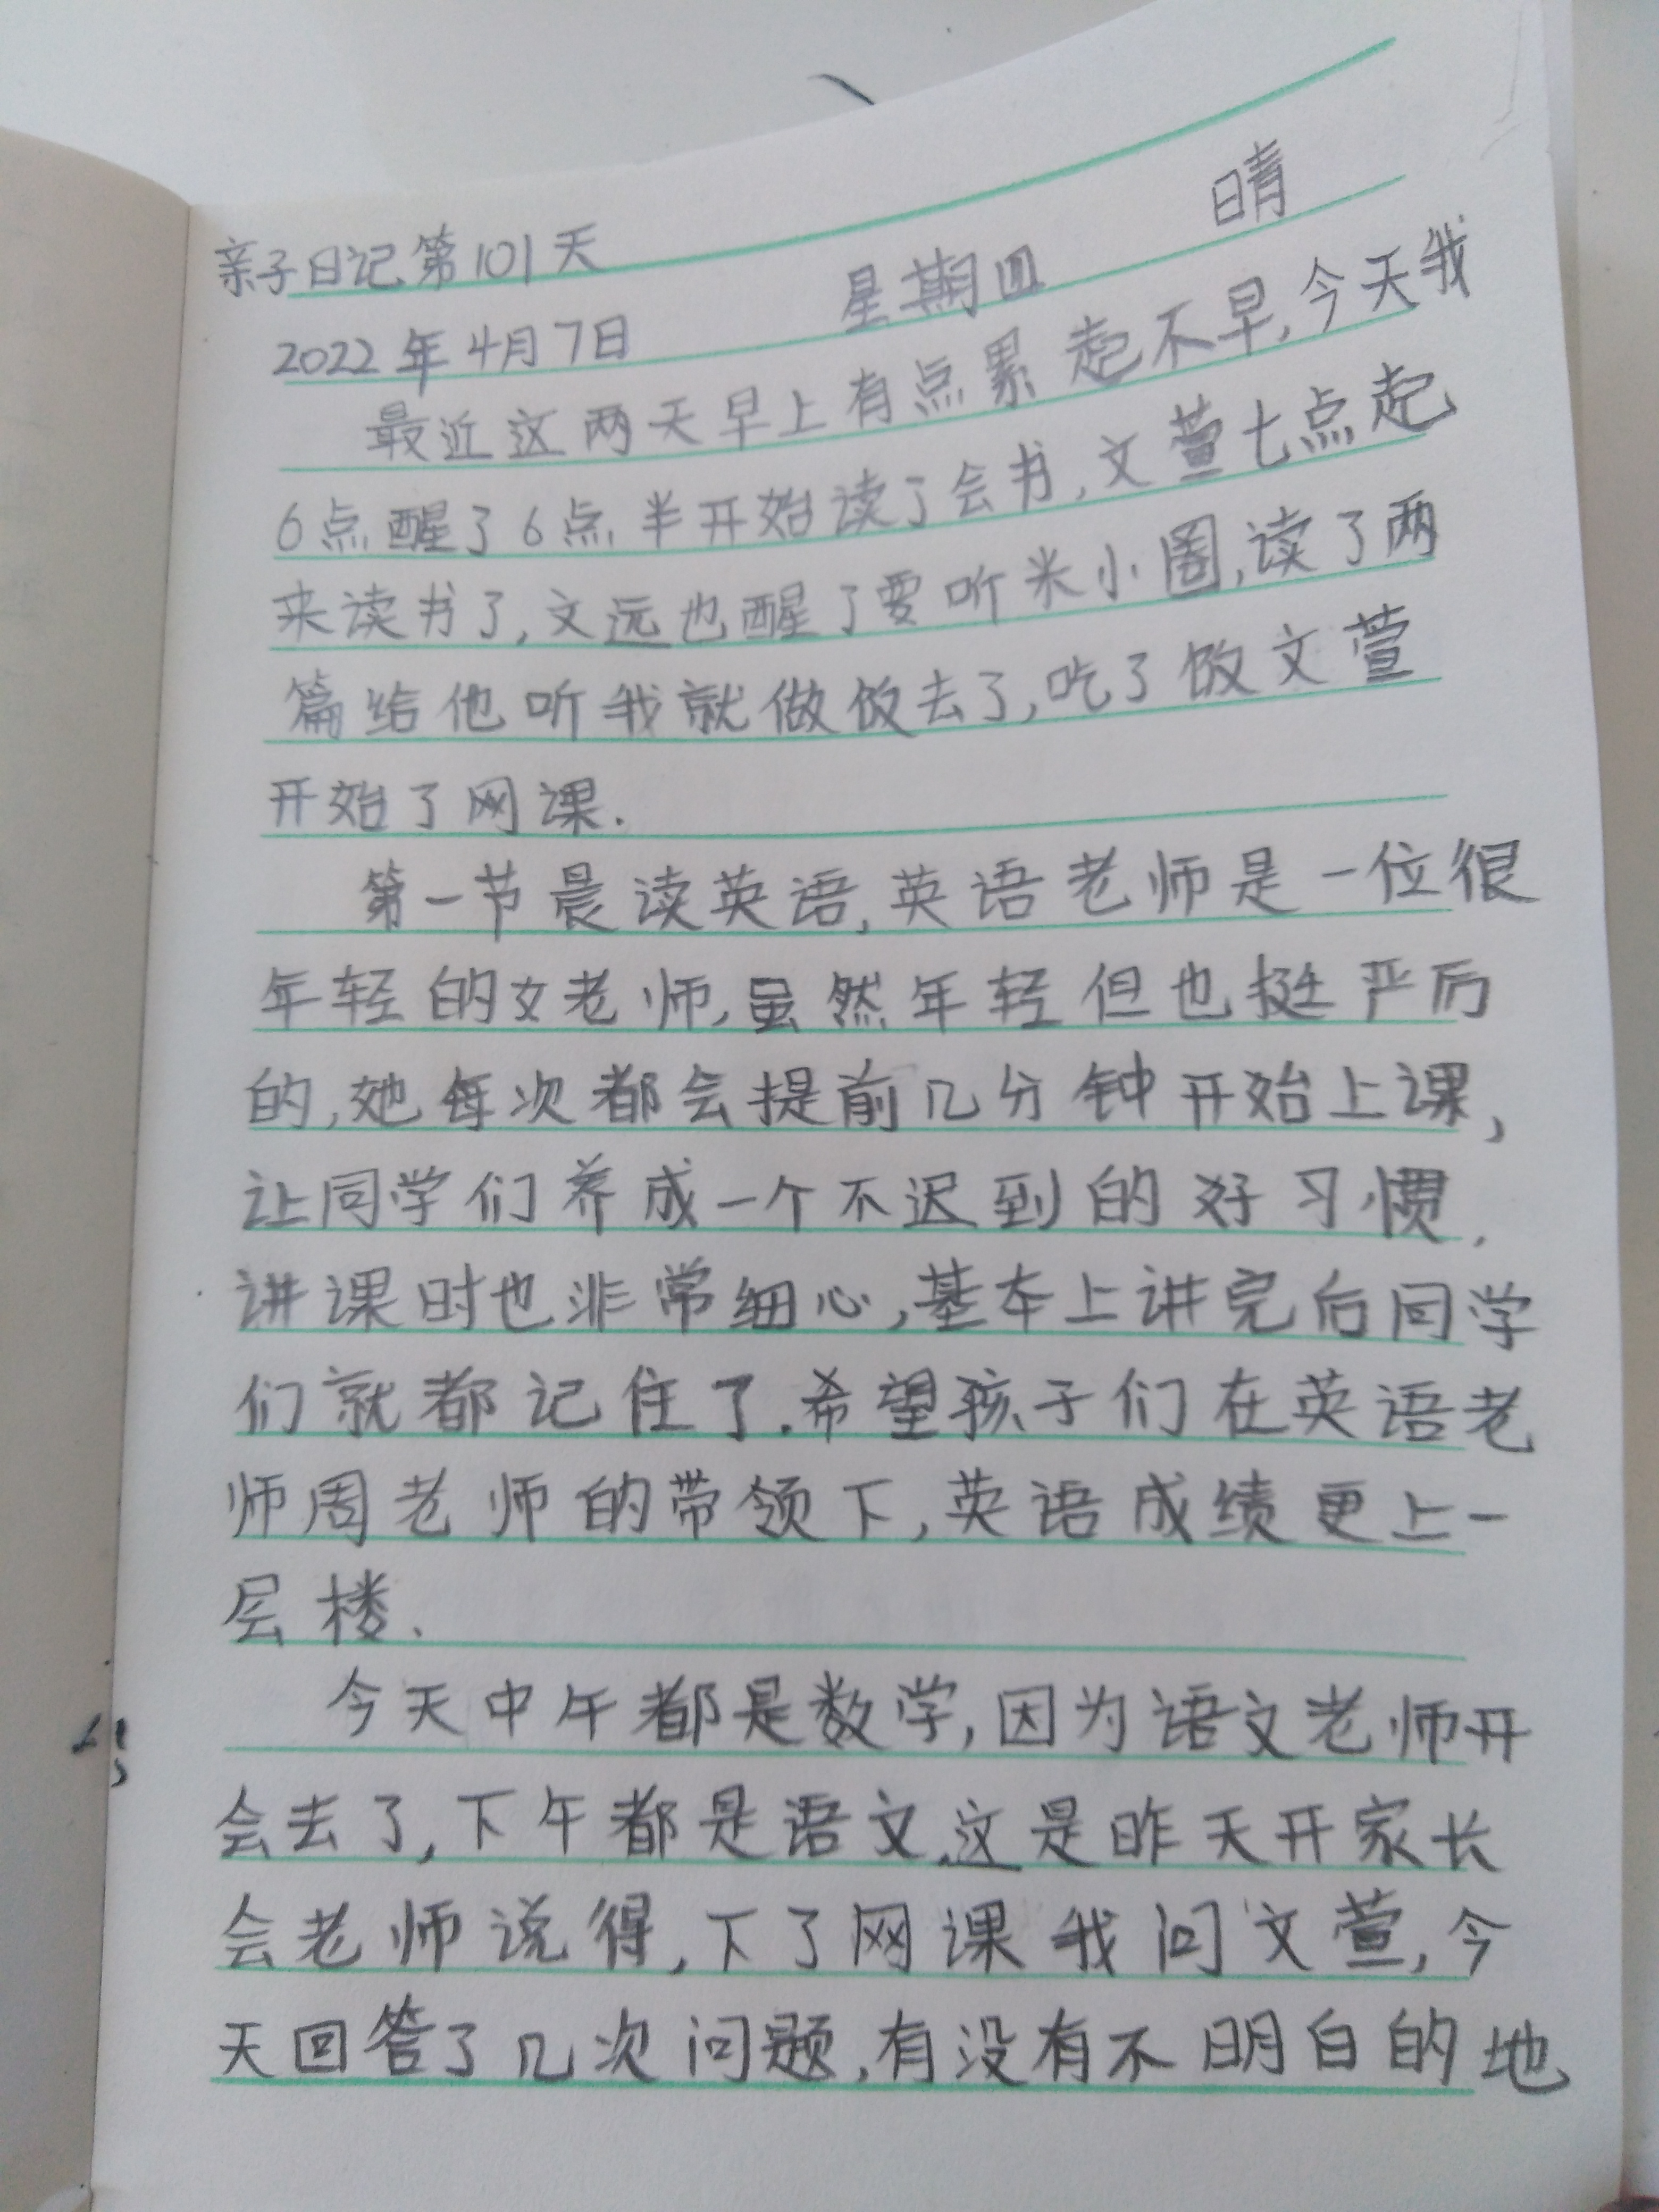 亲子日记第101天
2022年4月7日 星期四 晴
最近这两天早上有点累起不早,今天我
6点醒了6点半开始读了会书,文萱七点起
来读书了,文远也醒了要听米小圈,读了两
篇给他听我就做饭去了,吃了饭文萱
开始了网课.
第一节晨读英语,英语老师是一位很
年轻的女老师,虽然年轻但也挺严厉
的,她每次都会提前几分钟开始上课,
让同学们养成一个不迟到的好习惯.
讲课时也非常细心,基本上讲完后同学
们就都记住了.希望孩子们在英语老
师周老师的带领下,英语成绩更上一
层楼.
今天中午都是数学,因为语文老师开
会去了,下午都是语文,这是昨天开家长
会老师说得,下了网课我问文萱,今
天回答了几次问题,有没有不明白的地